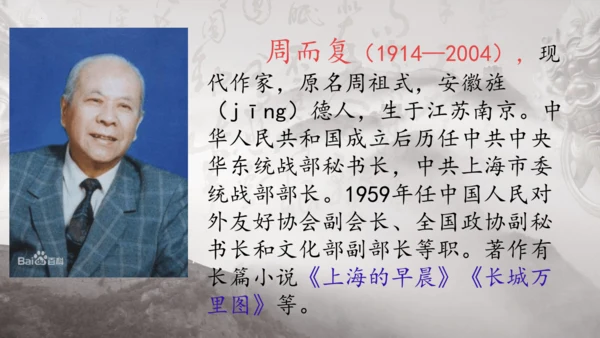 周而复（1914—2004），现
代作家，原名周祖式，安徽旌
（jīng）德人，生于江苏南京。中
华人民共和国成立后历任中共中央
华东统战部秘书长，中共上海市委
统战部部长。1959年任中国人民对
外友好协会副会长、全国政协副秘
书长和文化部副部长等职。著作有
长篇小说《上海的早晨》《长城万
里图》等。
Bai百科